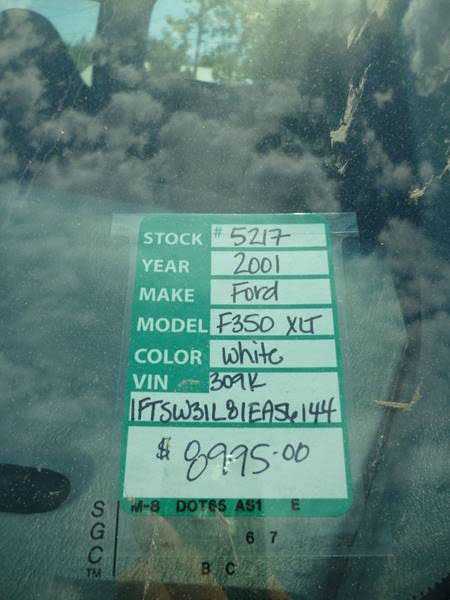 STOCK # 5217
YEAR 2001
MAKE Ford
MODEL F350 XLT
COLOR white
VIN 309K
1FTSW31L81EA56144
$ 8995.00
M-8 DOT65 AS1 E
S
G 6 7
C
TM B C